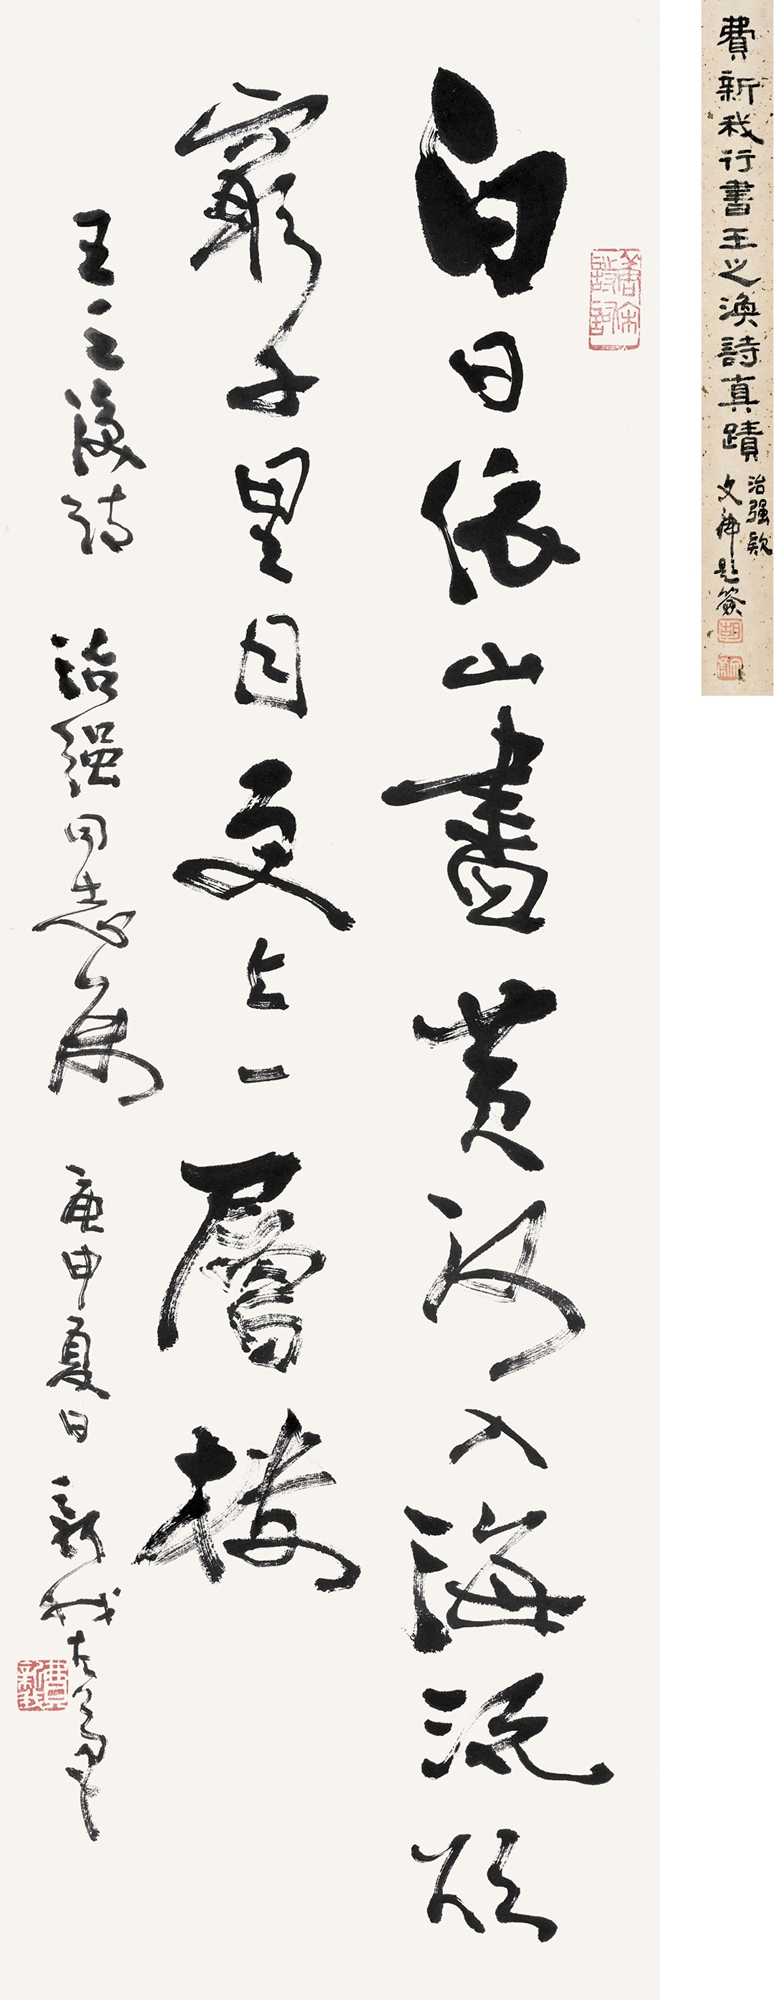 費新我行書王之渙詩真蹟
治强欵
題簽
白日依山盡黄河入海流欲
窮千里目更上一層樓
王之渙詩 治強同志屬 庚申夏日 新我左筆
費新我